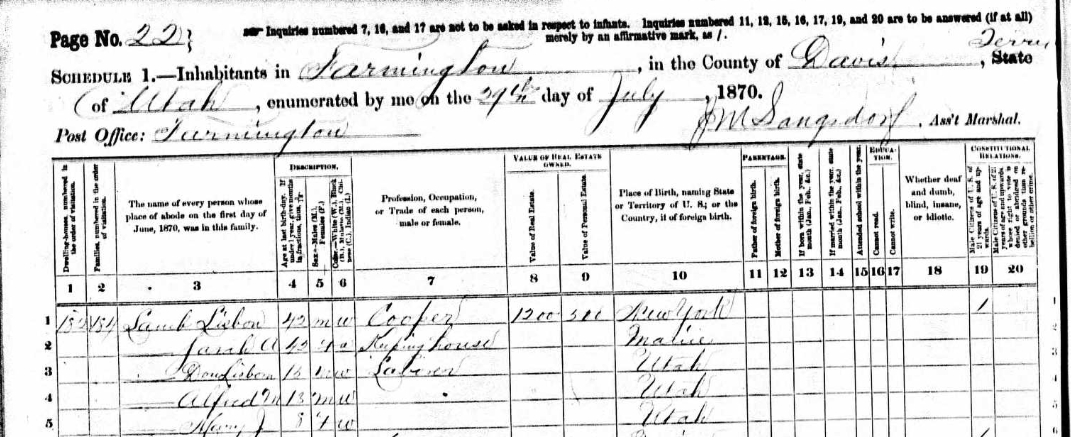 Page No. 22
Inquiries numbered 7, 16, and 17 are not to be asked in respect to infants. Inquiries numbered 11, 12, 15, 16, 17, 19, and 20 are to be answered (if at all)
merely by an affirmative mark, as /.
Schedule 1.—Inhabitants in Farmington, in the County of Davis, State
of Utah, enumerated by me on the 29th day of July, 1870.
Post Office: Farmington
J M Langsdorf, Ass't Marshal.
Dwelling-houses, numbered in the order of visitation.
Families, numbered in the order of visitation.
The name of every person whose place of abode on the first day of June, 1870, was in this family.
Description.
Age at last birth-day. If under 1 year, give months in fractions, thus, 3/12
Sex.—Males (M.), Females (F.)
Color.—White (W.), Black (B.), Mulatto (M.), Chinese (C.), Indian (I.)
Profession, Occupation, or Trade of each person, male or female.
Value of Real Estate owned.
Value of Real Estate.
Value of Personal Estate.
Place of Birth, naming State or Territory of U. S.; or the Country, if of foreign birth.
Parentage.
Father of foreign birth.
Mother of foreign birth.
If born within the year, state month (Jan., Feb., &c.)
If married within the year, state month (Jan., Feb., &c.)
Attended school within the year.
Education.
Cannot read.
Cannot write.
Whether deaf and dumb, blind, insane, or idiotic.
Constitutional Relations.
Male Citizens of U. S. of 21 years of age and upwards.
1 2 3 4 5 6 7 8 9 10 11 12 13 14 15 16 17 18 19 20
1 184 Lamb Lisbon 42 m w Cooper 1200 300 New York 1 1
2 Sarah A 43 Keeping house Maine
3 Don Lisbon m w Laborer Utah 3
4 Alfred 13 m w Utah 4
5 Mary J 8 f w Utah 5